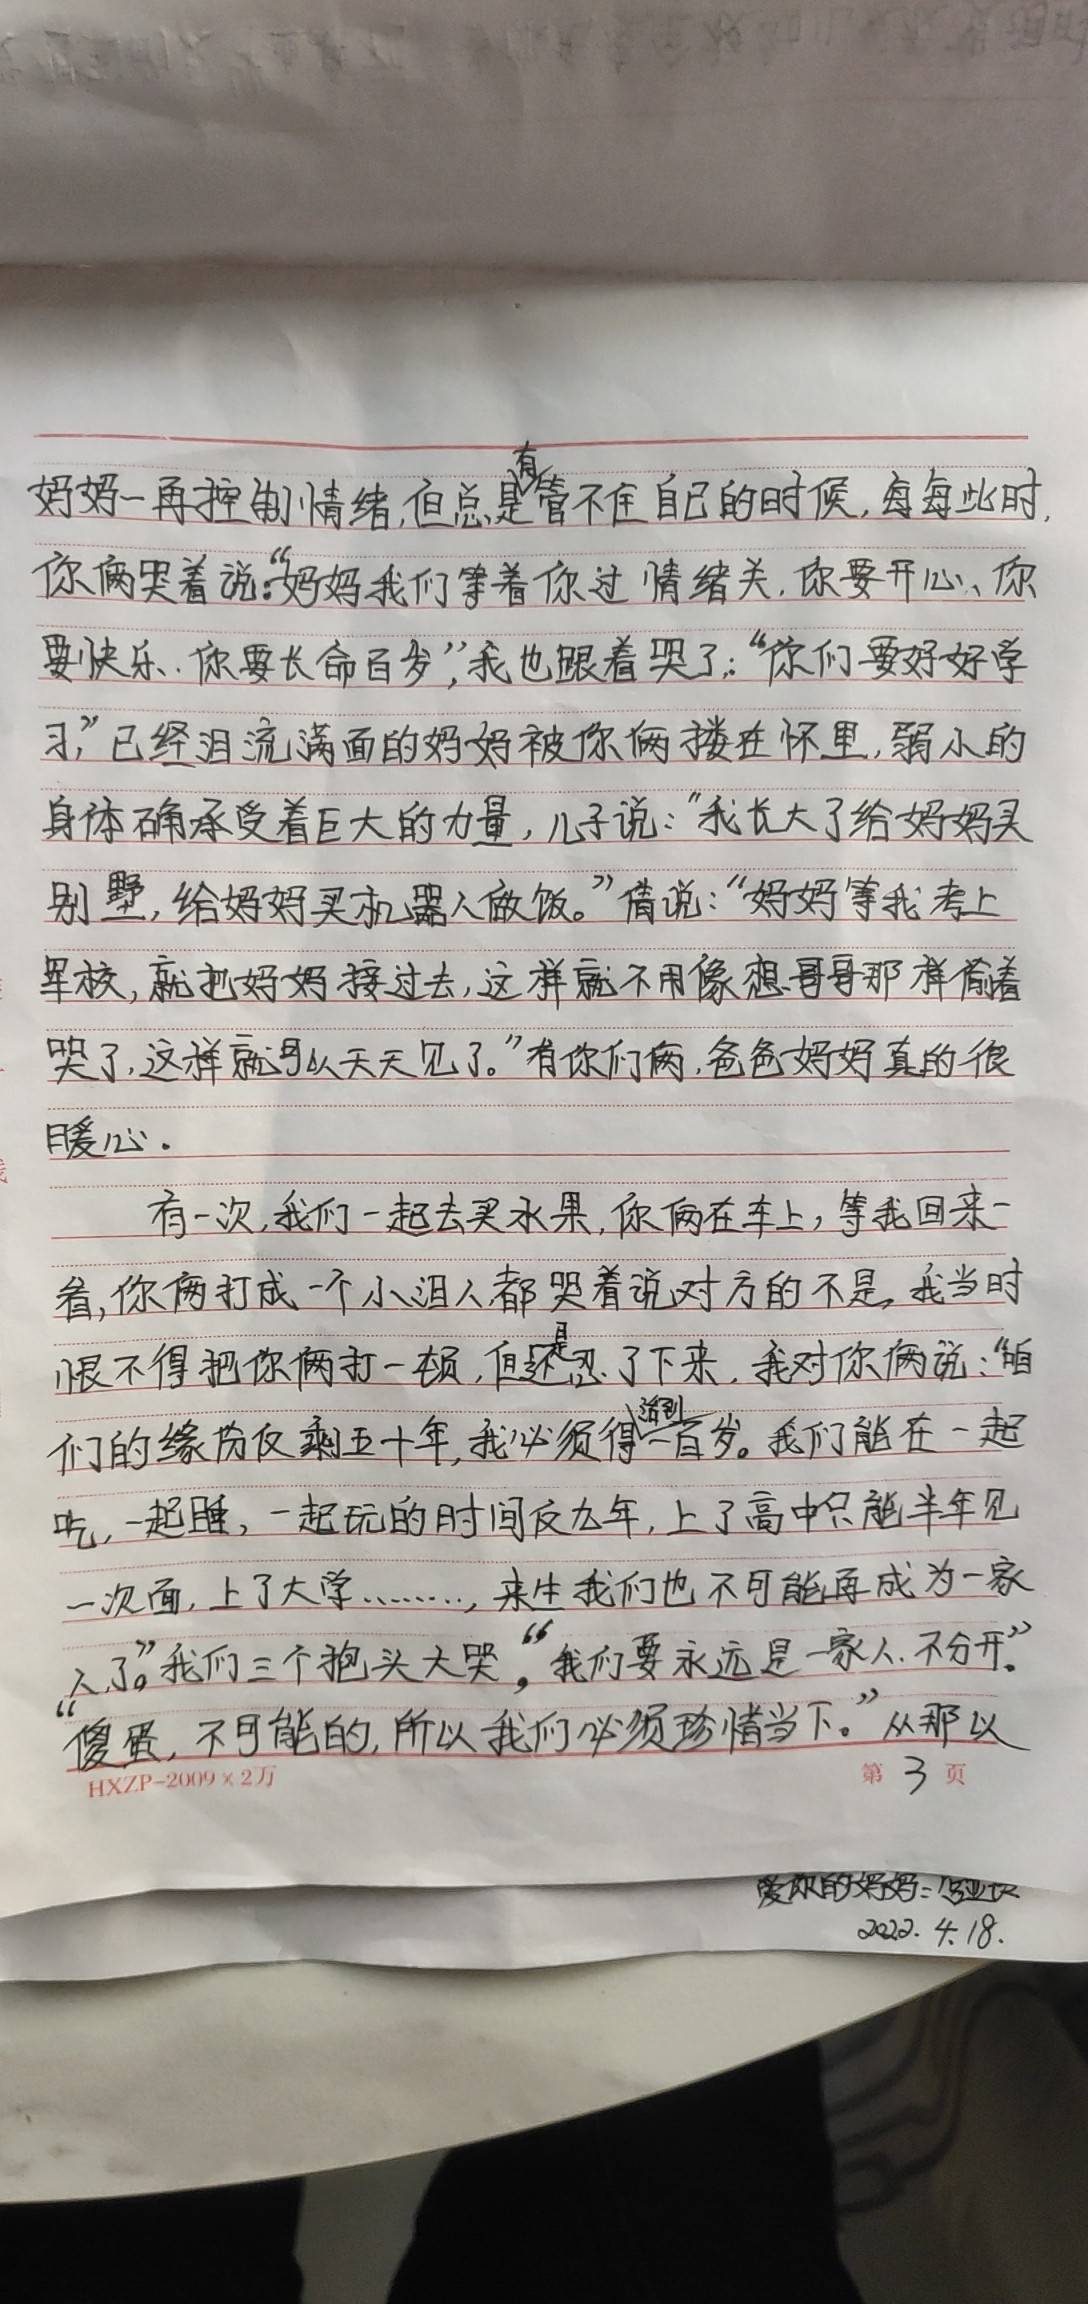 妈妈一再控制情绪,但总是有管不住自己的时候,每每此时,
你俩哭着说:“妈妈我们等着你过情绪关,你要开心、你
要快乐、你要长命百岁”,我也跟着哭了:“你们要好好学
习,”已经泪流满面的妈妈被你俩搂在怀里,弱小的
身体确承受着巨大的力量,儿子说:“我长大了给妈妈买
别墅,给妈妈买机器人做饭。”倩说:“妈妈等我考上
军校,就把妈妈接过去,这样就不用像想哥哥那样偷着
哭了,这样就可以天天见了。”有你们俩,爸爸妈妈真的很
暖心.
有一次,我们一起去买水果,你俩在车上,等我回来一
看,你俩打成一个小泪人都哭着说对方的不是,我当时
恨不得把你俩打一顿,但还是忍了下来,我对你俩说:“咱
们的缘份仅剩五十年,我必须得活到一百岁。我们能在一起
吃,一起睡,一起玩的时间仅九年,上了高中只能半年见
一次面,上了大学………,来生我们也不可能再成为一家
人了。”我们三个抱头大哭,“我们要永远是一家人,不分开。”
“傻蛋,不可能的,所以我们必须珍惜当下。”从那以
HXZP-2009×2万 第 3 页
爱你的妈妈:
2022.4.18.